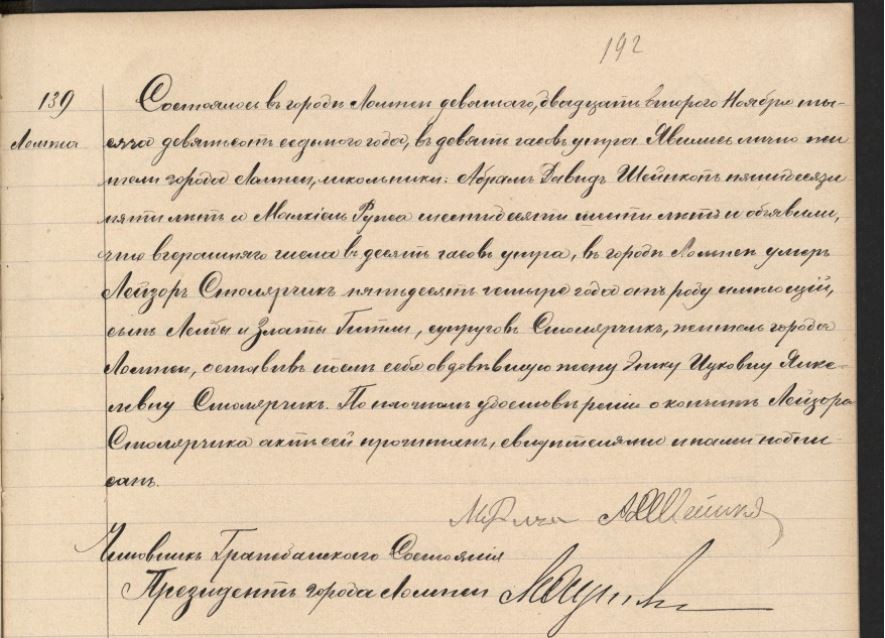 192
139
Ломжа
Состоялось въ городѣ Ломжѣ девятаго, двадцать второго Ноября ты-
сяча девятьсотъ седьмого года, въ девять часовъ утра. Явились лично жи
тели города Ломжи, школьники: Абрамъ Давидъ Шейнкопъ пятидесяти
пяти лѣтъ и Малкіель Рупса шестидесяти шести лѣтъ и объявили,
что вчерашняго числа въ десять часовъ утра, въ городѣ Ломжѣ умеръ
Лейзоръ Столярчикъ пятьдесятъ четыре года отъ роду имѣющій,
сынъ Лейбы и Златы Гитли, супруговъ Столярчикъ, житель города
Ломжи, оставивъ послѣ себя овдовѣвшую жену Ицковну Янке-
левну Столярчикъ. По личномъ удостовѣреніи о кончинѣ Лейзора
Столярчика актъ сей прочитанъ, свидѣтелями и нами подпи-
санъ.
Чиновникъ Гражданскаго Состоянія
Президентъ города Ломжи